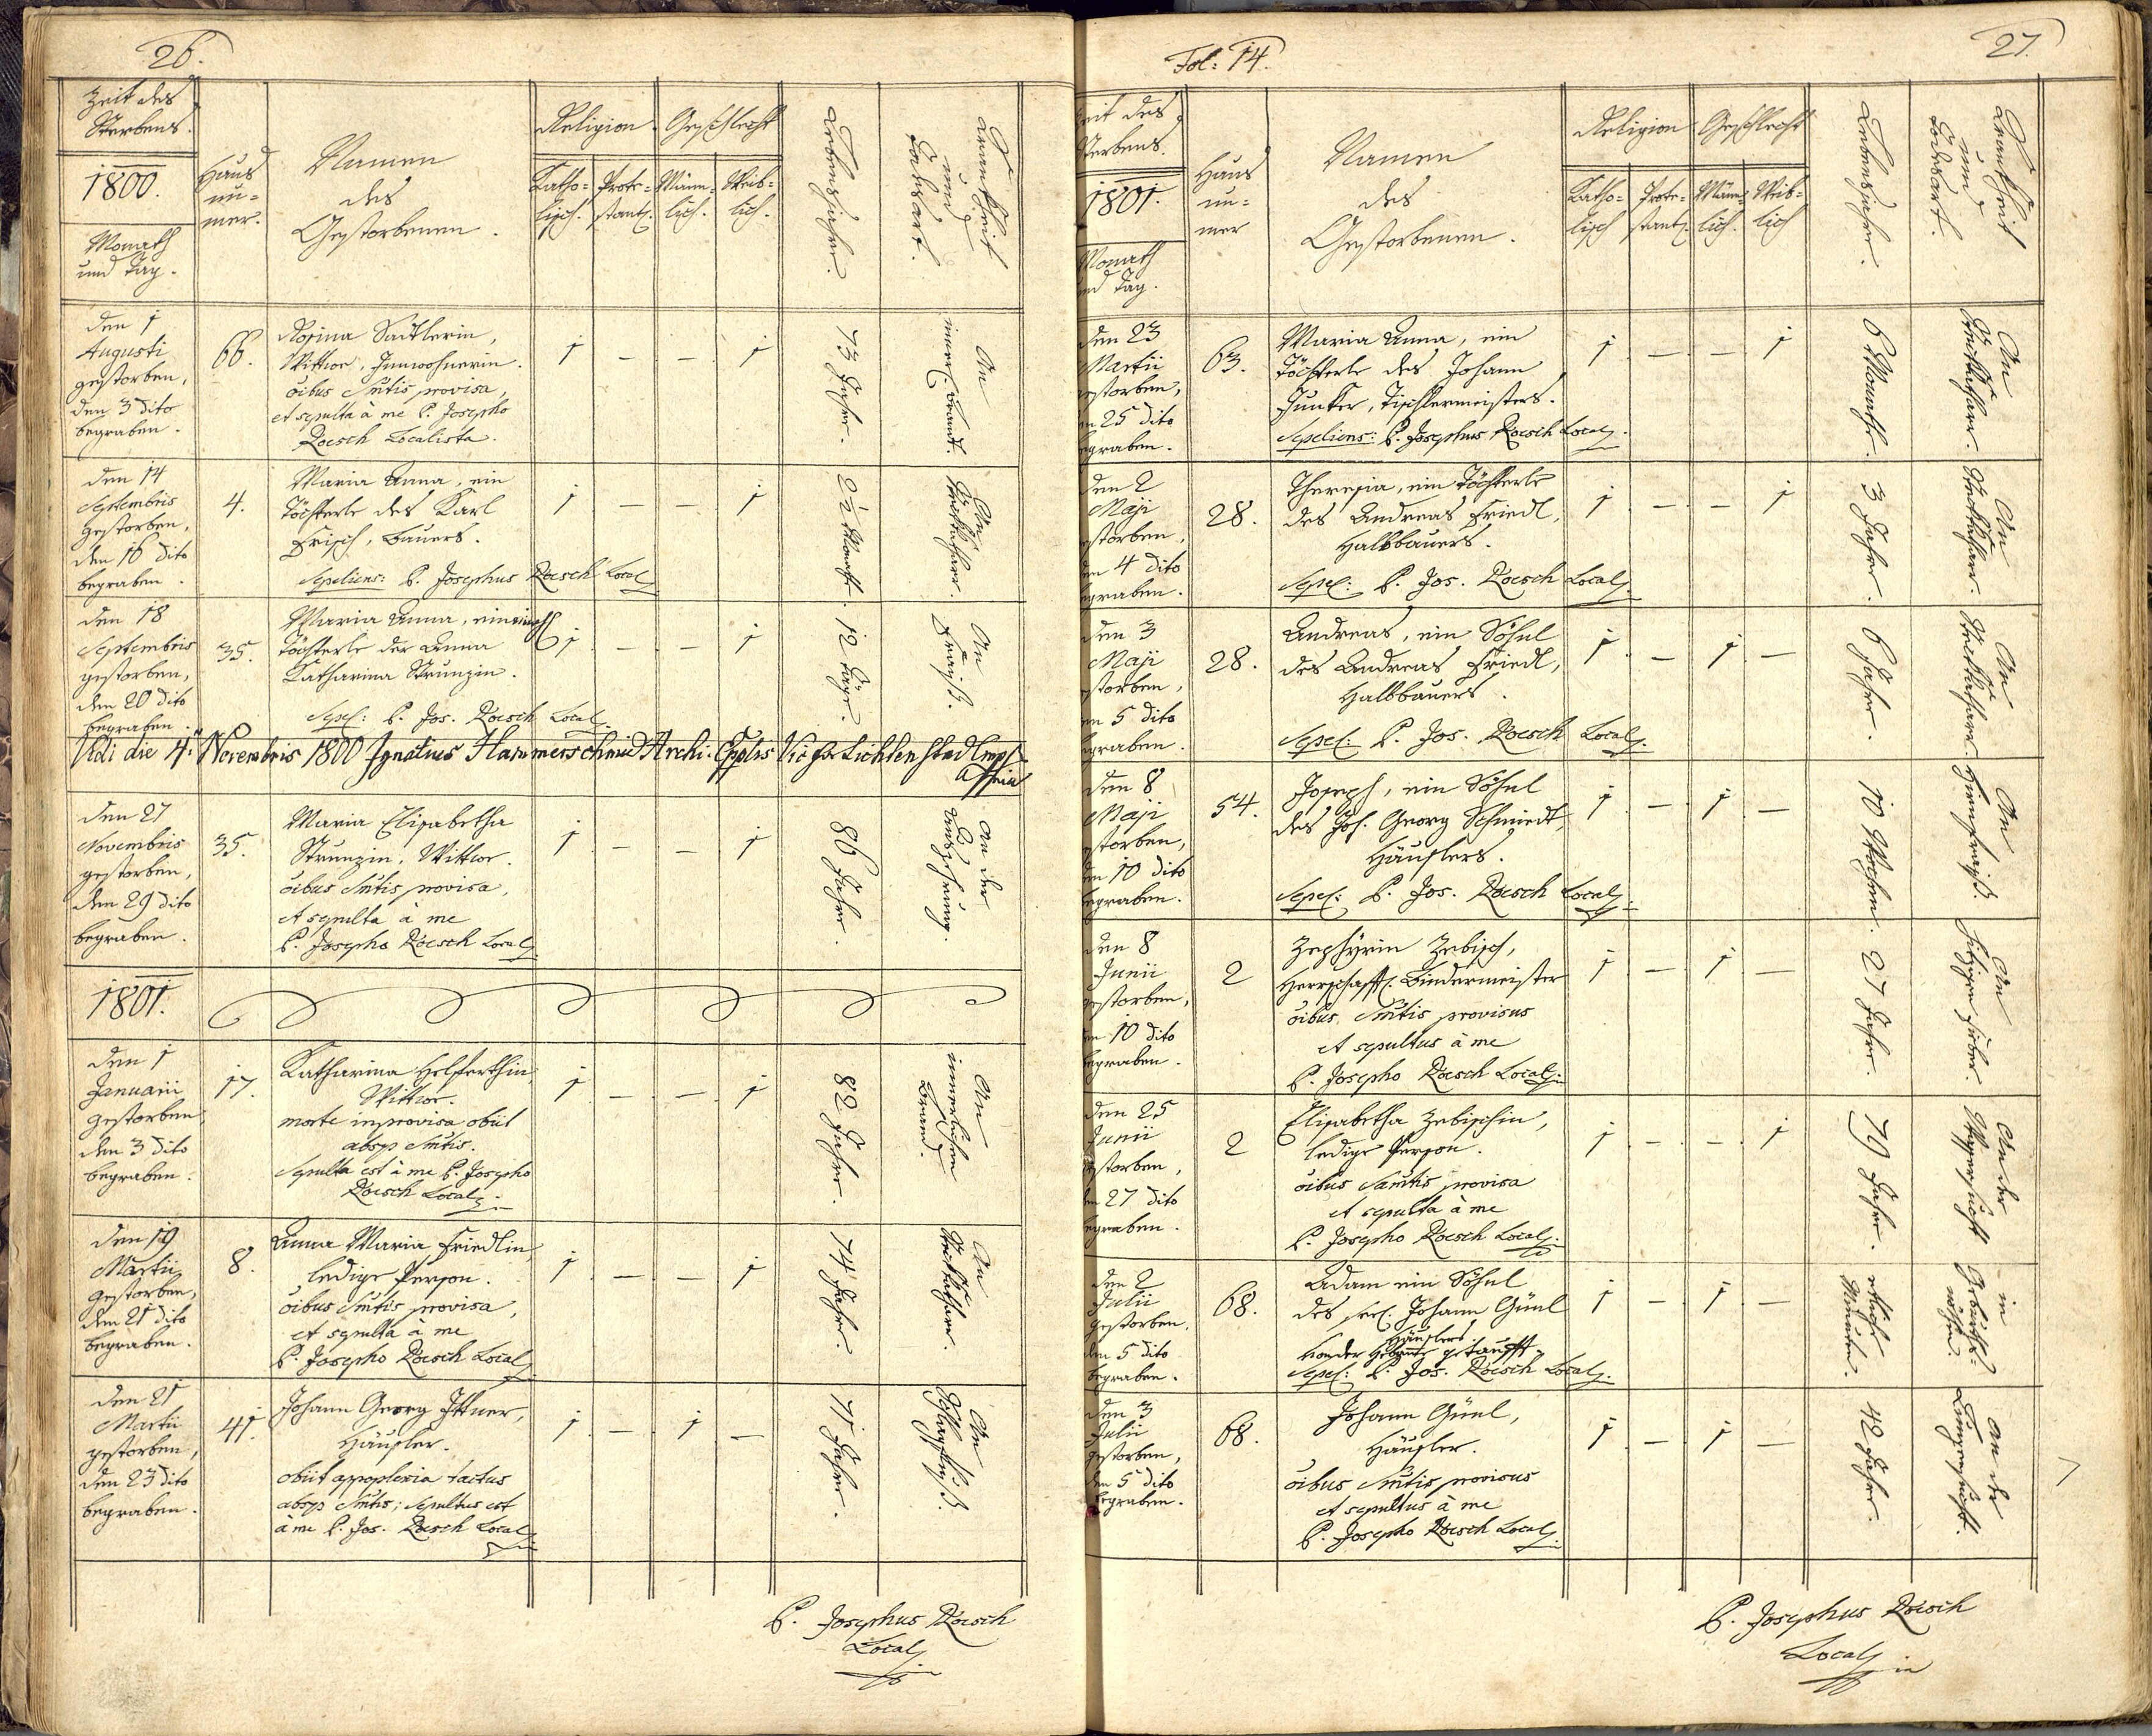 26.
Zeit des
Sterbens.
1800.
Monath
und Tag.
Haus
nu=
mer.
Namen
des
Gestorbenen.
Religion.
Katho=
lisch.
Prote=
stant.
Geschlecht
Männ=
lich.
Weib=
lich.
Lebensjahre.
Krankheit
und
Todesart.
den 1
Augusti
gestorben,
den 3 dito
begraben.
66.
Rosina Sattlerin,
Wittwe, Innwohnerin.
oibus Sntis provisa,
et sepulta à me P. Josepho
Roesch Localista.
1 — — 1
73 Jahre.
An
innerl. Brand.
den 14
Septembris
gestorben,
den 16 dito
begraben.
4.
Maria Anna, ein
Töchterle des Karl
Frisch, Bauers.
Sepeliens: P. Josephus Roesch Local
1 — — 1
2½ Monath.
An
Steckkathare.
den 18
Septembris
gestorben,
den 20 dito
begraben.
35.
Maria Anna, ein
Töchterle der Anna
Katharina Strunzin.
Sepel: P. Jos. Roesch Local
1 — — 1
12 Täge.
An
Fraiß.
Vidi die 4: Novembris 1800 Ignatius Hammerschmid Archi.
den 27
Novembris
gestorben,
den 29 dito
begraben.
35.
Maria Elisabetha
Strunzin, Wittwe.
oibus Sntis provisa,
et sepulta à me
P. Josepho Roesch Local
1 — — 1
86 Jahre.
An der
Auszehrung.
1801.
den 1
Januarii
gestorben
den 3 dito
begraben.
17.
Katharina Helferthin,
Wittwe.
morte improvisa obiit
absqs Sntis.
Sepulta est à me P. Josepho
Roesch Local
1 — — 1
82 Jahre.
An
innerlichen
Brand.
den 19
Martii
gestorben,
den 21 dito
begraben.
8.
Anna Maria Friedlin,
ledige Person.
oibus Sntis provisa,
et sepulta à me
P. Josepho Roesch Local
1 — — 1
74 Jahre.
An
Steckkathare.
den 21
Martii
gestorben,
den 23 dito
begraben.
41.
Johann Georg Ittner,
Häusler.
obiit appoplexia tactus
absqs Sntis; sepultus est
à me P. Jos. Roesch Local
1 — 1 —
71 Jahre.
An
Schlagfluß.
P. Josephus Roesch
Local
Fol: 14.
27.
Zeit des
Sterbens.
1801.
Monath
und Tag.
Haus
nu=
mer
Namen
des
Gestorbenen.
Religion
Katho=
lisch
Prote=
stant.
Geschlecht
Männ=
lich.
Weib=
lich
Lebensjahre.
Krankheit
und
Todesart.
den 23
Martii
gestorben,
den 25 dito
begraben.
63.
Maria Anna, ein
Töchterle des Johann
Junker, Tischlermeisters.
Sepeliens: P. Josephus Roesch Local
1 — — 1
6 Monathe.
An
Steckkathare.
den 2
Maji
gestorben,
den 4 dito
begraben.
28.
Theresia, ein Töchterle
des Andreas Friedl,
Halbbauers.
Sepel: P. Jos. Roesch Local
1 — — 1
3 Jahre.
An
Steckkathare.
den 3
Maji
gestorben,
den 5 dito
begraben.
28.
Andreas, ein Söhnl
des Andreas Friedl,
Halbbauers.
Sepel: P. Jos. Roesch Local
1 — 1 —
6 Jahre.
An
Steckkathare
den 8
Maji
gestorben,
den 10 dito
begraben.
54.
Joseph, ein Söhnl
des Joh. Georg Schmiedt,
Häuslers.
Sepel: P. Jos. Roesch Local
1 — 1 —
10 Wochen.
An
den 8
Junii
gestorben,
den 10 dito
begraben.
2
Zephÿrin Zebisch,
Herrschaftl. Bindermeister
oibus Sntis provisus
et sepultus à me
P. Josepho Roesch Local
1 — 1 —
27 Jahre.
An
hitzigen Fieber.
den 25
Junii
gestorben,
den 27 dito
begraben.
2
Elisabetha Zebischin,
ledige Person.
oibus Santis provisa
et sepulta à me
P. Josepho Roesch Local
1 — — 1
79 Jahre.
An der
Wassersucht
den 2
Julii
gestorben,
den 5 dito
begraben.
68.
Adam ein Söhnl
des seel. Johann Günl
Häuslers
von der Hebamme getaufft.
Sepel: P. Jos. Roesch Local
1 — 1 —
etliche
Minuten.
in
Geburts=
nöthen.
den 3
Julii
gestorben,
den 5 dito
begraben.
68.
Johann Günl,
Häusler.
oibus Sntis provisus
et sepultus à me
P. Josepho Roesch Local
1 — 1 —
42 Jahre.
An der
Lungensucht.
P. Josephus Roesch
Local